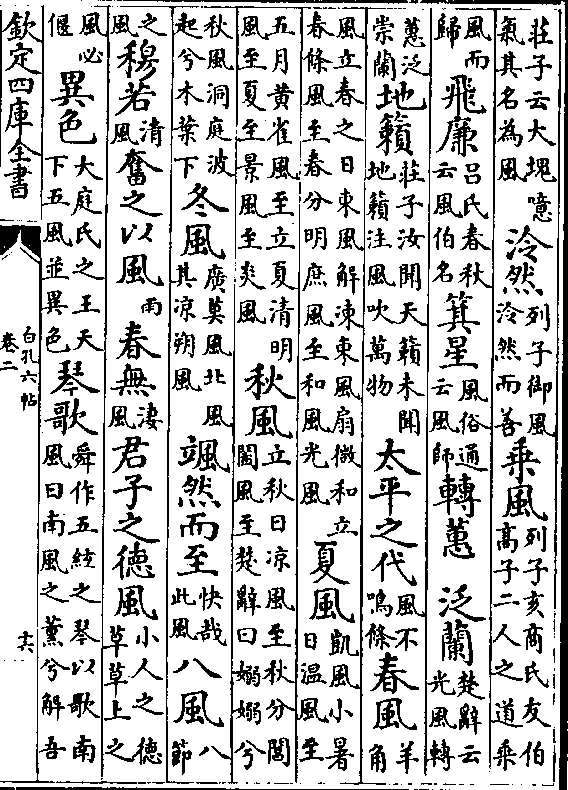 莊子云大塊噫氣其名為風泠然列子御風泠然而善乘風列子亥商氏友伯高子二人之道乘
風而歸飛廉吕氏春秋云風伯名箕星風俗通云風師轉蕙泛蘭楚辭云光風轉
蕙泛崇蘭地籟莊子汝聞天籟未聞地籟注風吹萬物太平之代風不鳴條春風羊角
風立春之日東風解凍東風扇微和立春條風至春分明庶風至和風光風夏風凱風小暑日温風至
五月黄雀風至立夏清明風至夏至景風至炎風秋風立秋日凉風至秋分閶闔風至楚辭曰嫋嫋兮
秋風洞庭波起兮木葉下冬風廣莫風北風其凉朔風颯然而至快哉此風八風八節
之風穆若清風奮之以風雨春無淒風君子之德風小人之德草草上之
風必偃異色大庭氏之王天下五風並異色琴歌舜作五絃之琴以歌南風曰南風之薰兮解吾
欽定四庫全書
白孔六帖
卷二
十六